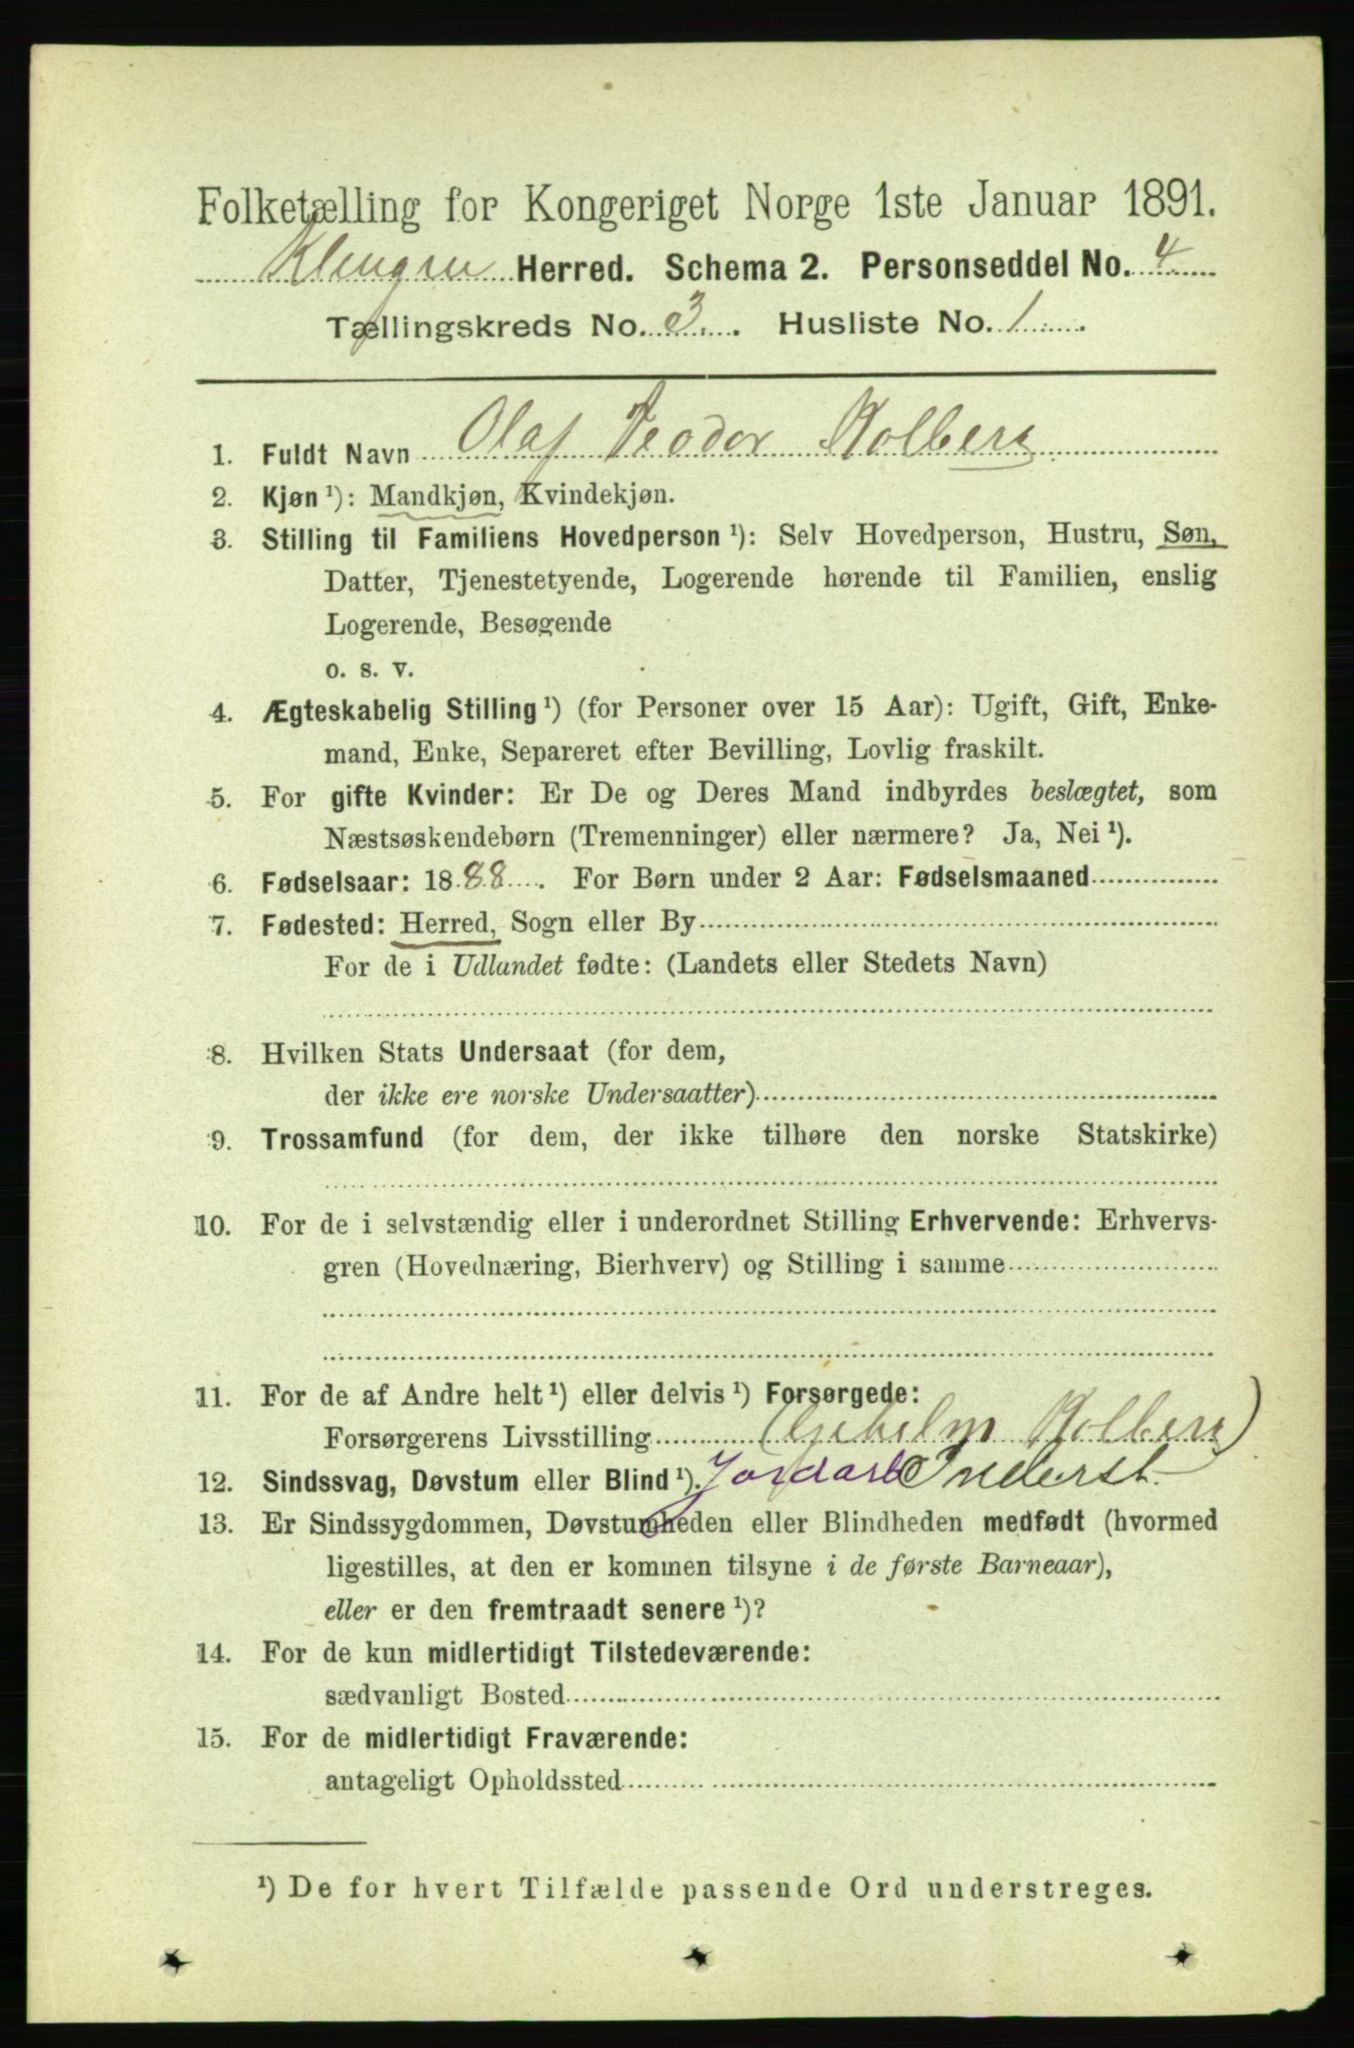 Folketælling for Kongeriget Norge 1ste Januar 1891.
Klingen Herred. Schema 2. Personseddel No. 4
Tællingskreds No. 3. Husliste No. 1
1. Fuldt Navn Olaf Teodor Kolberg
2. Kjøn ¹): Mandkjøn, Kvindekjøn.
3. Stilling til Familiens Hovedperson ¹): Selv Hovedperson, Hustru, Søn,
Datter, Tjenestetyende, Logerende hørende til Familien, enslig
Logerende, Besøgende
o. s. v.
4. Ægteskabelig Stilling ¹) (for Personer over 15 Aar): Ugift, Gift, Enke-
mand, Enke, Separeret efter Bevilling, Lovlig fraskilt.
5. For gifte Kvinder: Er De og Deres Mand indbyrdes beslægtet, som
Næstsøskendebørn (Tremenninger) eller nærmere? Ja, Nei ¹).
6. Fødselsaar: 1888. For Børn under 2 Aar: Fødselsmaaned
7. Fødested: Herred, Sogn eller By
For de i Udlandet fødte: (Landets eller Stedets Navn)
8. Hvilken Stats Undersaat (for dem,
der ikke ere norske Undersaatter)
9. Trossamfund (for dem, der ikke tilhøre den norske Statskirke)
10. For de i selvstændig eller i underordnet Stilling Erhvervende: Erhvervs-
gren (Hovednæring, Bierhverv) og Stilling i samme
11. For de af Andre helt ¹) eller delvis ¹) Forsørgede:
Forsørgerens Livsstilling Kolberg)
12. Sindssvag, Døvstum eller Blind ¹).
13. Er Sindssygdommen, Døvstumheden eller Blindheden medfødt (hvormed
ligestilles, at den er kommen tilsyne i de første Barneaar),
eller er den fremtraadt senere ¹)?
14. For de kun midlertidigt Tilstedeværende:
sædvanligt Bosted
15. For de midlertidigt Fraværende:
antageligt Opholdssted
¹) De for hvert Tilfælde passende Ord understreges.